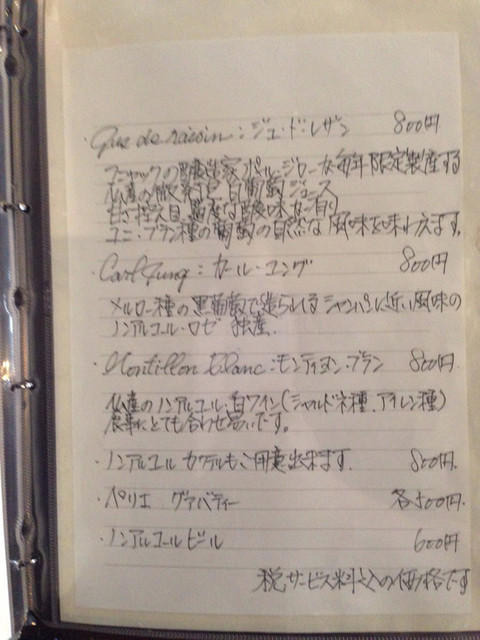 ・Jus de raisin：ジュ・ド・レザン 800円
コニャックの醸造家ポール・ジローが毎年限定製産する
仏産の微発泡白葡萄ジュース
甘さ控え目、適度な酸味が有り
ユニ・ブラン種の葡萄の自然な風味を味わえます。
・Carl Jung：カール・ユング 800円
メルロー種の黒葡萄で造られるシャンパンに近い風味の
ノンアルコール・ロゼ 独産.
・Montillon Blanc：モンティヨン・ブラン 800円.
仏産のノンアルコール白ワイン(シャルドネ種、アイレン種)
食事にとても合わせ易いです。
・ノンアルコール カクテルもご用意出来ます. 800円.
・ペリエ グァバティー 各500円.
・ノンアルコールビール 600円
税サービス料込の価格です